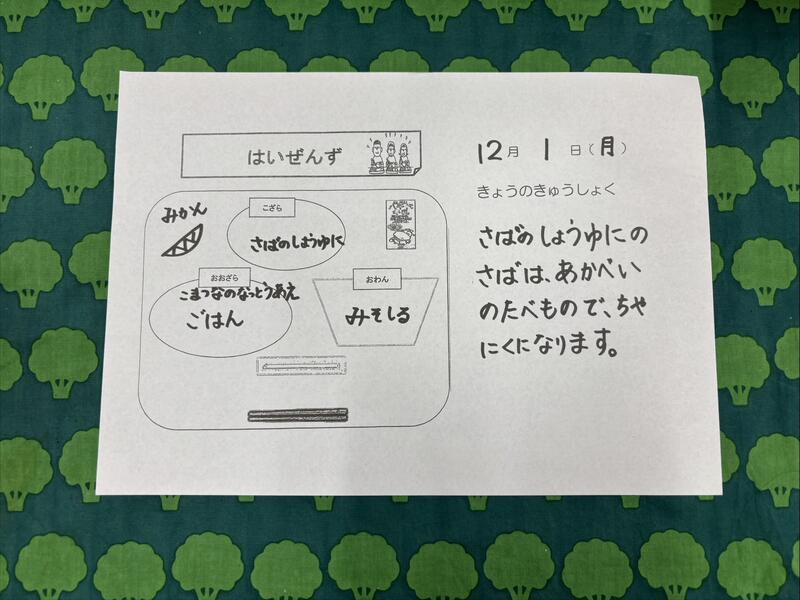 はいぜんず
みかん
こざら
さばのしょうゆに
おおざら
こまつなのなっとうあえ
ごはん
おわん
みそしる
12月 1 日(月)
きょうのきゅうしょく
さばのしょうゆにの
さばは、あかべい
のたべもので、ちや
にくになります。